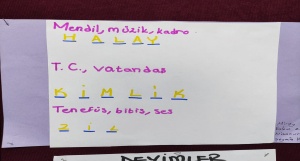 Mendil, müzik, kadro
H A L A Y
T. C., vatandas
K İ M L İ K
Tenefüs, bitis, ses
Z i L
DEYİMLER